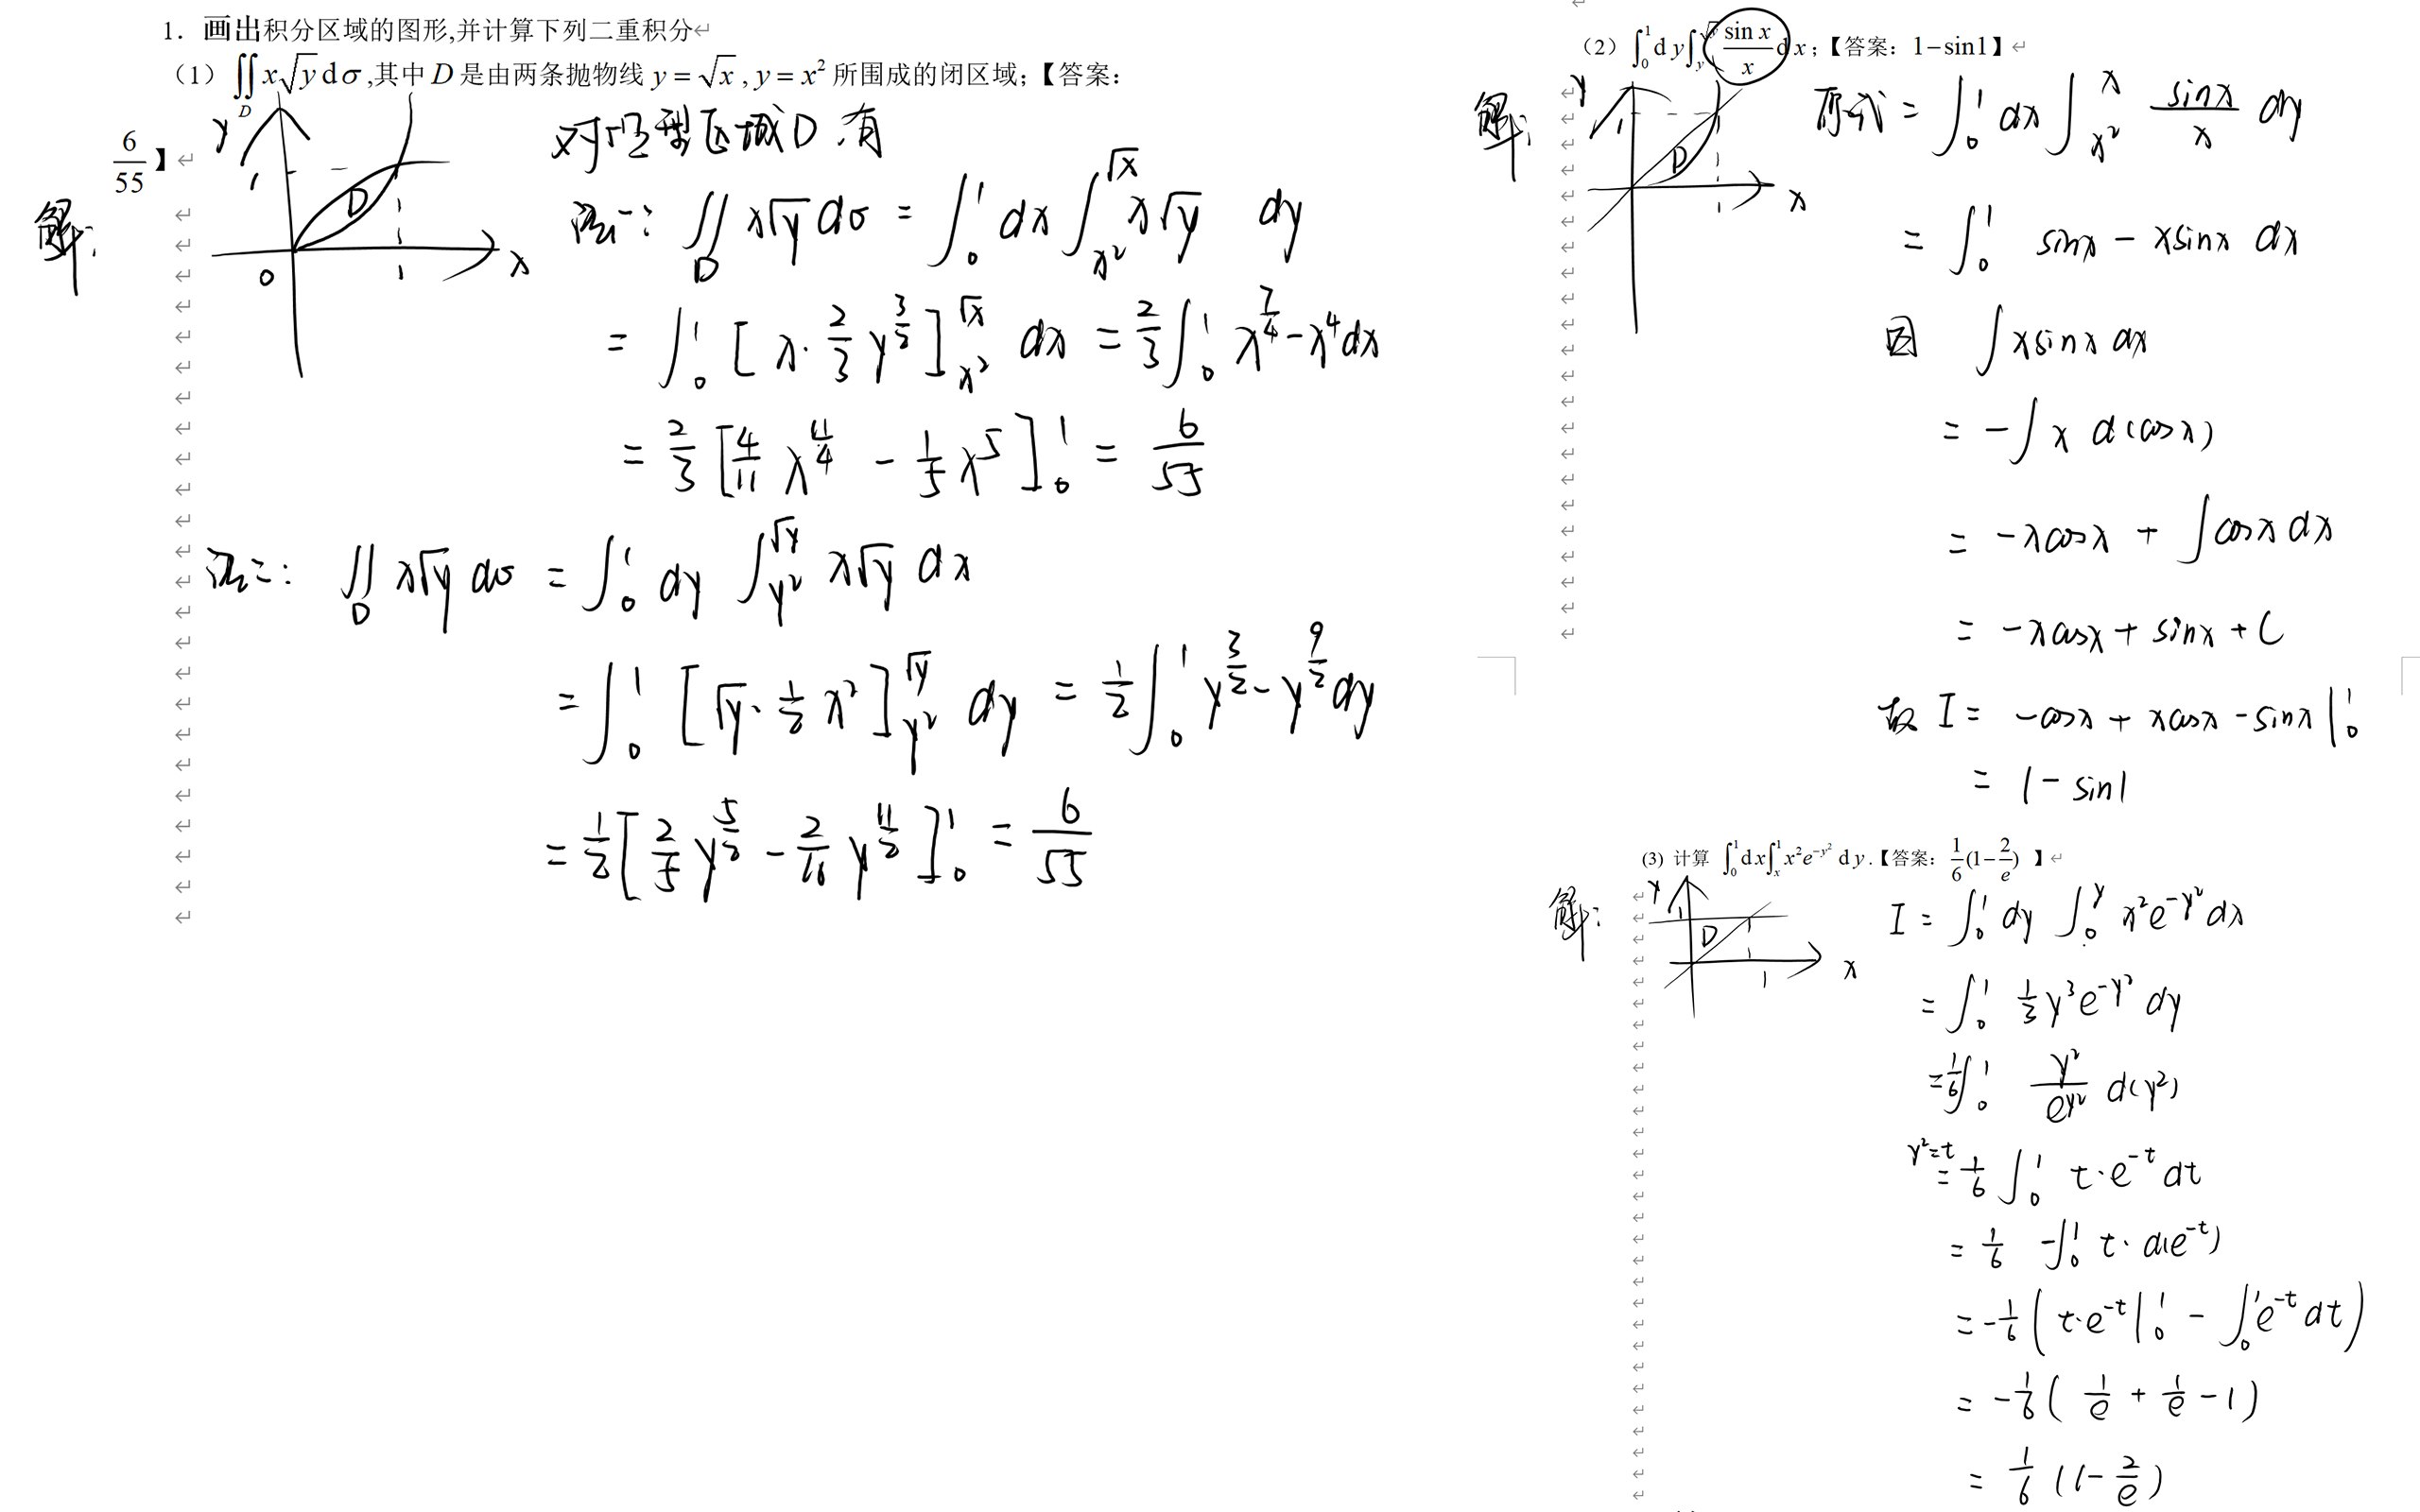 1. 画出积分区域的图形,并计算下列二重积分
(1) ∬_D x√y dσ ,其中 D 是由两条抛物线 y = √x , y = x² 所围成的闭区域;【答案:
6/55】
y
1
D
0
1
x
解:
对 型区域D 有
法一: ∬_D x√y dσ = ∫_0^1 dx ∫_{x²}^{√x} x√y dy
= ∫_0^1 [x·2/3 y^{3/2}]_{x²}^{√x} dx = 2/3 ∫_0^1 x^{7/4} - x⁴ dx
= 2/3 [4/11 x^{11/4} - 1/5 x⁵]_0^1 = 6/55
法二: ∬_D x√y dσ = ∫_0^1 dy ∫_{y²}^{√y} x√y dx
= ∫_0^1 [√y·1/2 x²]_{y²}^{√y} dy = 1/2 ∫_0^1 y^{3/2} - y^{9/2} dy
= 1/2 [2/5 y^{5/2} - 2/11 y^{11/2}]_0^1 = 6/55
(2) ∫_0^1 dy ∫_y^{√y} (sin x)/x dx ;【答案: 1-sin1】
解:
y
1
D
1
x
原式 = ∫_0^1 dx ∫_{x²}^{x} (sinx)/x dy
= ∫_0^1 sinx - xsinx dx
因 ∫xsinx dx
= -∫x d(cosx)
= -xcosx + ∫cosx dx
= -xcosx + sinx + C
故 I = -cosx + xcosx - sinx |_0^1
= 1 - sin1
(3) 计算 ∫_0^1 dx ∫_x^1 x²e^{-y²} dy .【答案: 1/6(1-2/e) 】
解:
y
1
D
1
x
I = ∫_0^1 dy ∫_0^y x²e^{-y²} dx
= ∫_0^1 1/3 y³e^{-y²} dy
= 1/6 ∫_0^1 y²/e^{y²} d(y²)
y²=t
= 1/6 ∫_0^1 t·e^{-t} dt
= 1/6 -∫_0^1 t·d(e^{-t})
= -1/6 (t·e^{-t}|_0^1 - ∫_0^1 e^{-t} dt)
= -1/6 (1/e + 1/e - 1)
= 1/6 (1 - 2/e)